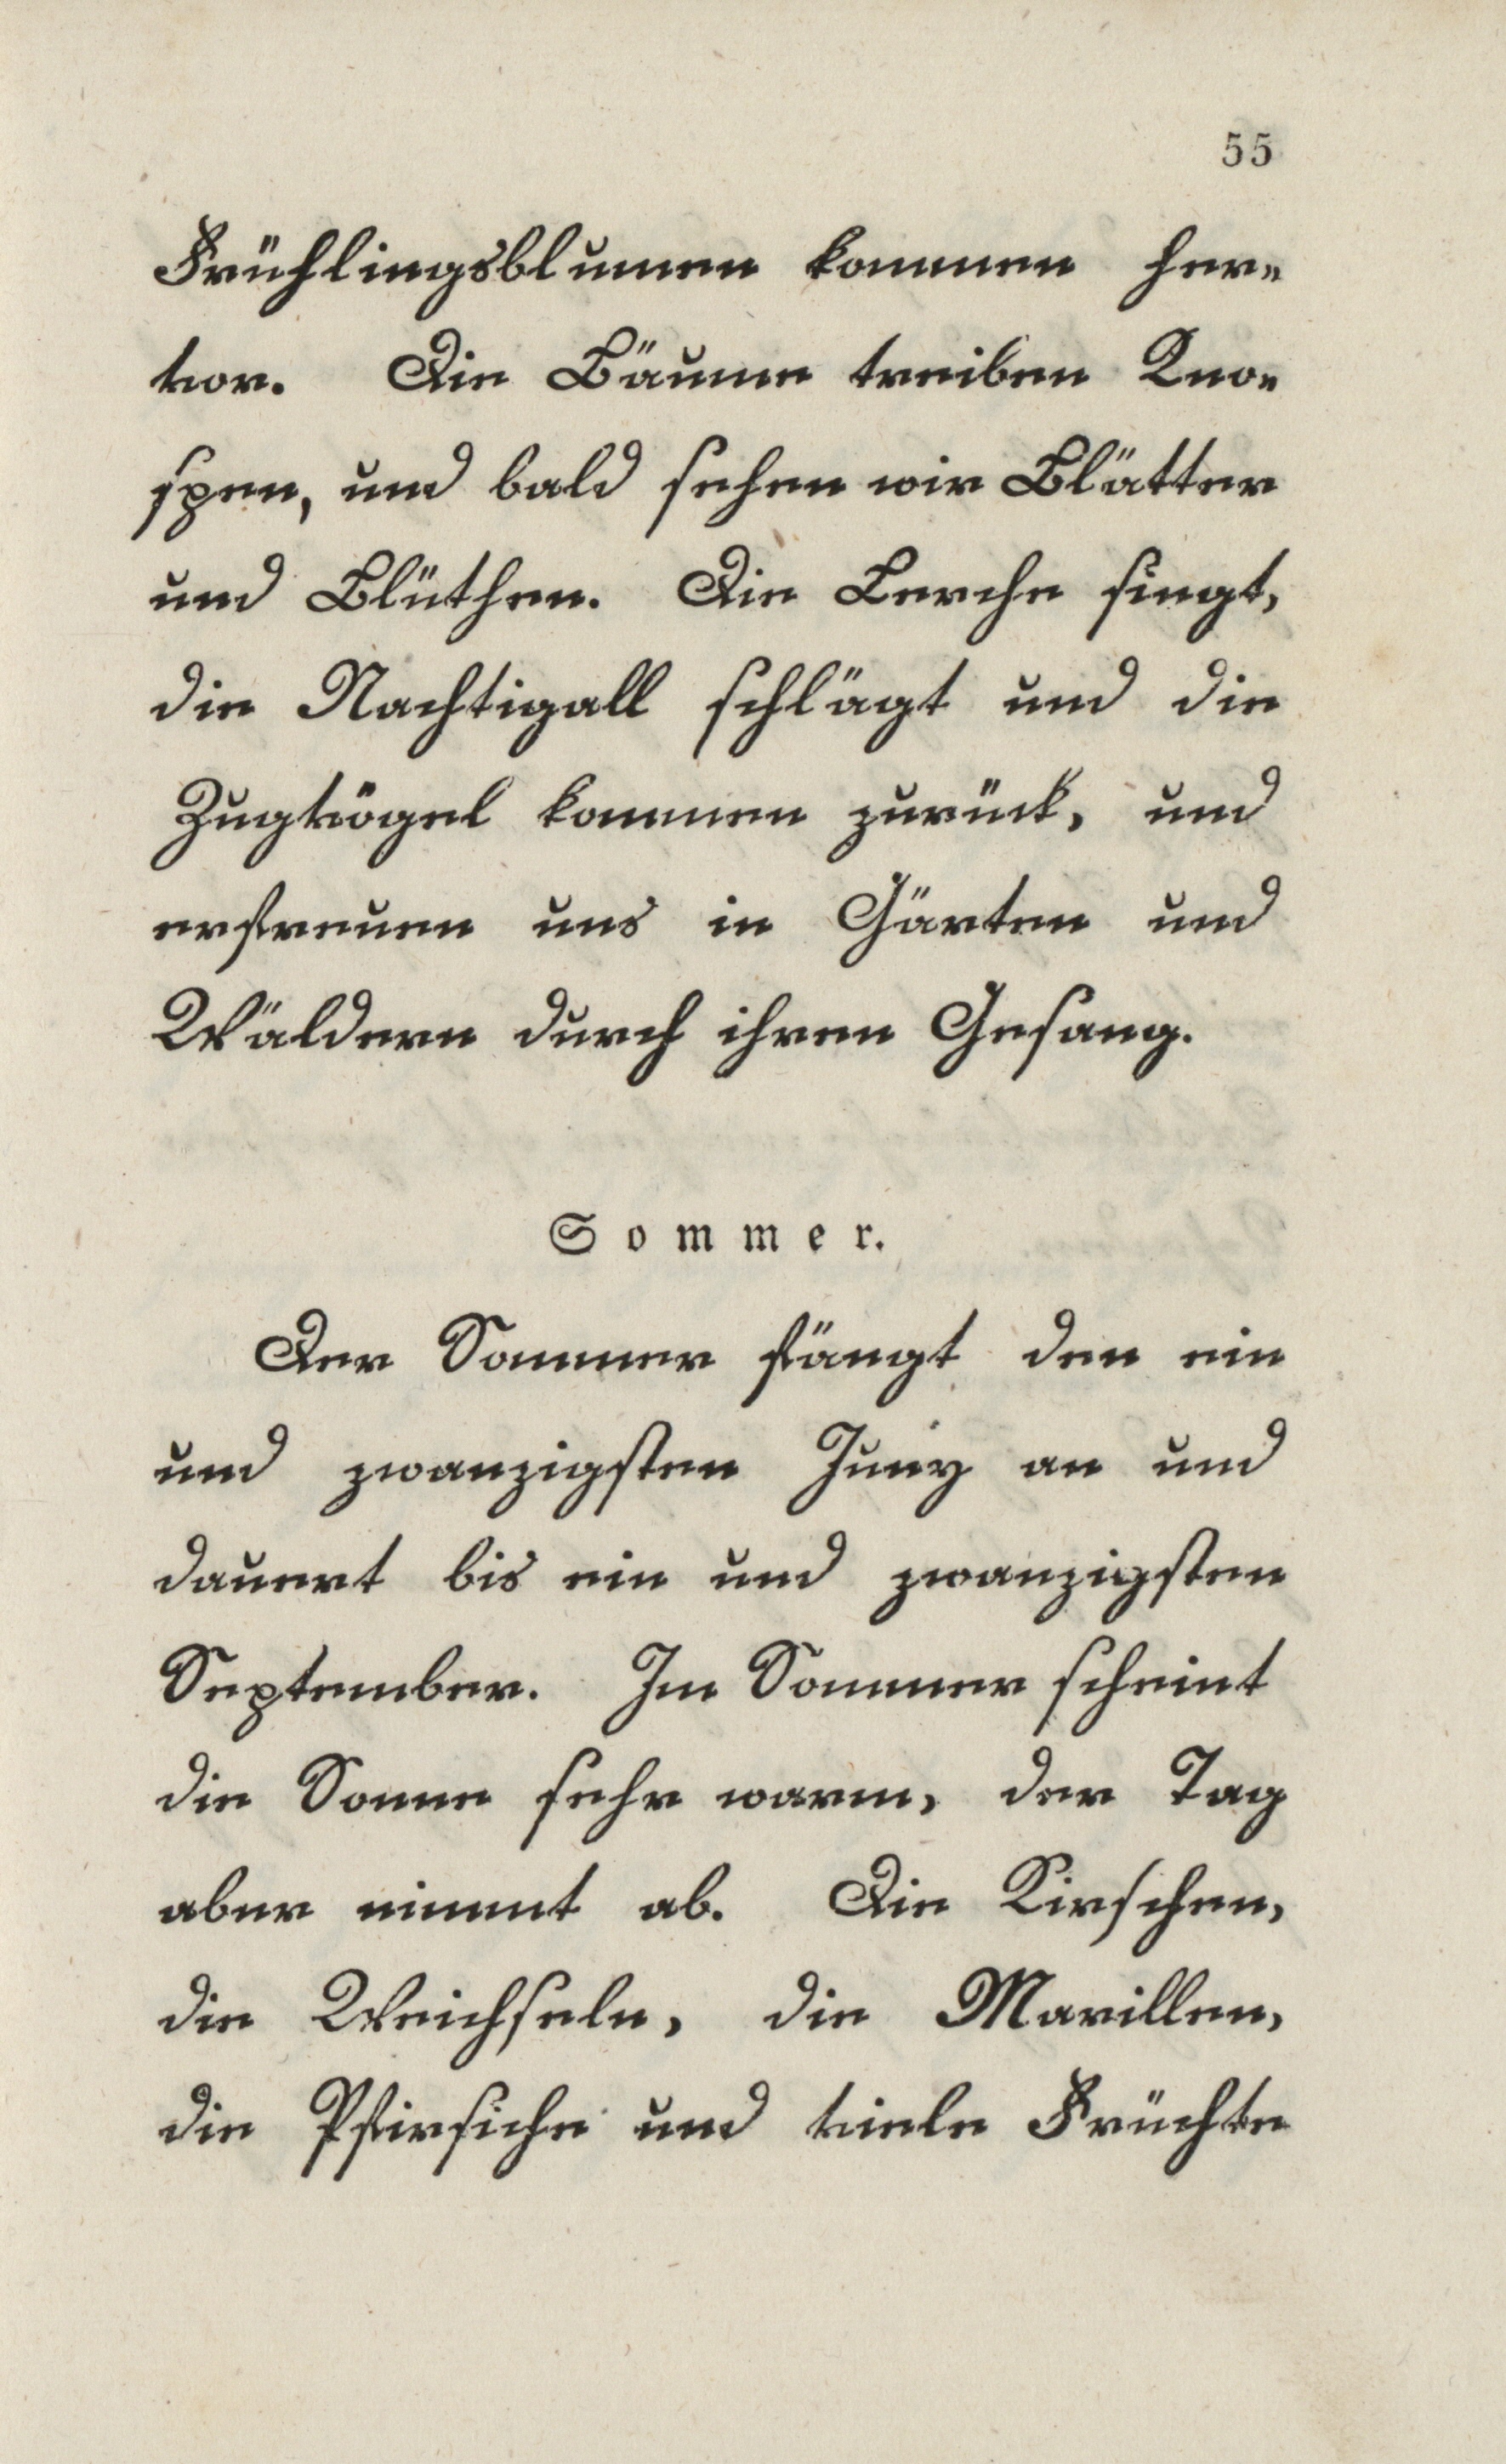 55
Frühlingsblumen kommen her=
vor. Die Bäume treiben Kno=
spen, und bald sehen wir Blätter
und Blüthen. Die Lerche singt,
die Nachtigall schlägt und die
Zugvögel kommen zurück, und
erfreuen uns in Gärten und
Wäldern durch ihren Gesang.
Sommer.
Der Sommer fängt den ein
und zwanzigsten Juny an und
dauert bis ein und zwanzigsten
September. Im Sommer scheint
die Sonne sehr warm, der Tag
aber nimmt ab. Die Kirschen,
die Weichseln, die Marillen,
die Pfirsiche und viele Früchte